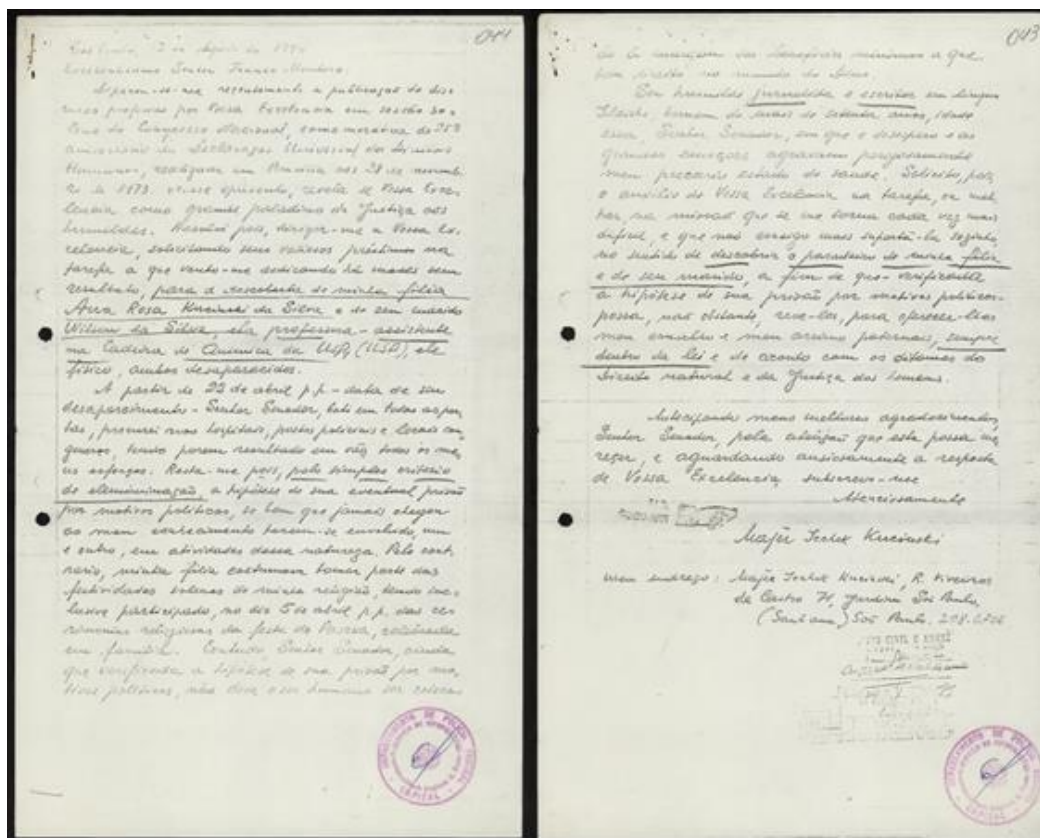 044
São Paulo, 2 de Agosto de 1974
Excelentíssimo Senhor Franco Montoro.
recentemente a publicação do dis-
curso proferido por Vossa Excelencia em sessão so-
lene do Congresso Nacional, comemorativa do 25º
aniversario da Declaração Universal dos Direitos
Humanos, realizada em Brasilia aos 28 de novem-
bro de 1973. revela se Vossa Exce-
lencia como grande paladino da Justiça aos
humildes. Resolvi pois, dirigir-me a Vossa Ex-
celencia, solicitando seus valiosos préstimos na
tarefa a que venho-me dedicando há meses sem
resultado, para a descoberta de minha filha
Ana Rosa Kucinski da Silva e de seu marido
Wilson da Silva, ela professora-assistente
na Cadeira de Quimica da (USP), ele
físico, ambos desaparecidos.
A partir de 22 de abril p.p. - data de seu
desaparecimento - Senhor Senador, bati em todas as por-
tas, procurei nos hospitais, postos policiais e locais con-
gêneres, tendo porem resultado em vão todos os me-
us esforços. Resta-me pois, pelo simples critério
de elemininação, a hipótese de sua eventual prisão
por motivos politicos, se bem que jamais chegou
ao meu conhecimento terem-se envolvido, um
e outro, em atividades dessa natureza. Pelo cont-
rario, minha filha costumava tomar parte das
festividades solenes de minha religião, tendo in-
clusive participado, no dia 5 de abril p.p. das ce-
rimonias religiosas da festa da Pascoa, celebrada
em familia. Contudo, Senhor Senador, ainda
que verificada a hipótese de sua prisão por mo-
tivos politicos, não deve o ser humano ser coloca-
DEPARTAMENTO DE POLICIA
CAPITAL
043
do à margem dos beneficios minimos a que
tem direito no mundo de Deus.
Sou humilde jornalista e escritor em lingua
Idische, homem de mais de setenta anos, idade
essa, Senhor Senador, em que o desespero e as
grandes emoções agravam perigosamente
meu precario estado de saude. Solicito, pois,
o auxilio de Vossa Excelencia na tarefa, ou mel-
hor, na missão que se me torna cada vez mais
dificil, e que não consigo mais suportá-la sozinho,
no sentido de descobrir o paradeiro de minha filha
e de seu marido, a fim de que - verificando
a hipótese de sua prisão por motivos politicos -
possa, não obstante, reve-los, para oferecer-lhes
meu conselho e meu arrimo paternais, sempre
dentro da lei e de acordo com os ditames do
Direito natural e da Justiça dos homens.
Antecipando meus melhores agradecimentos,
Senhor Senador, pela atenção que esta possa me-
recer, e aguardando ansiosamente a resposta
de Vossa Excelencia subscrevo-me
Atenciosamente
Majer Icchok Kucinski
meu endereço: Majer Icchok Kucinski, R. Viveiros
de Castro Jardim São Paulo,
(Santana) São Paulo.
DEPARTAMENTO DE POLICIA
CAPITAL